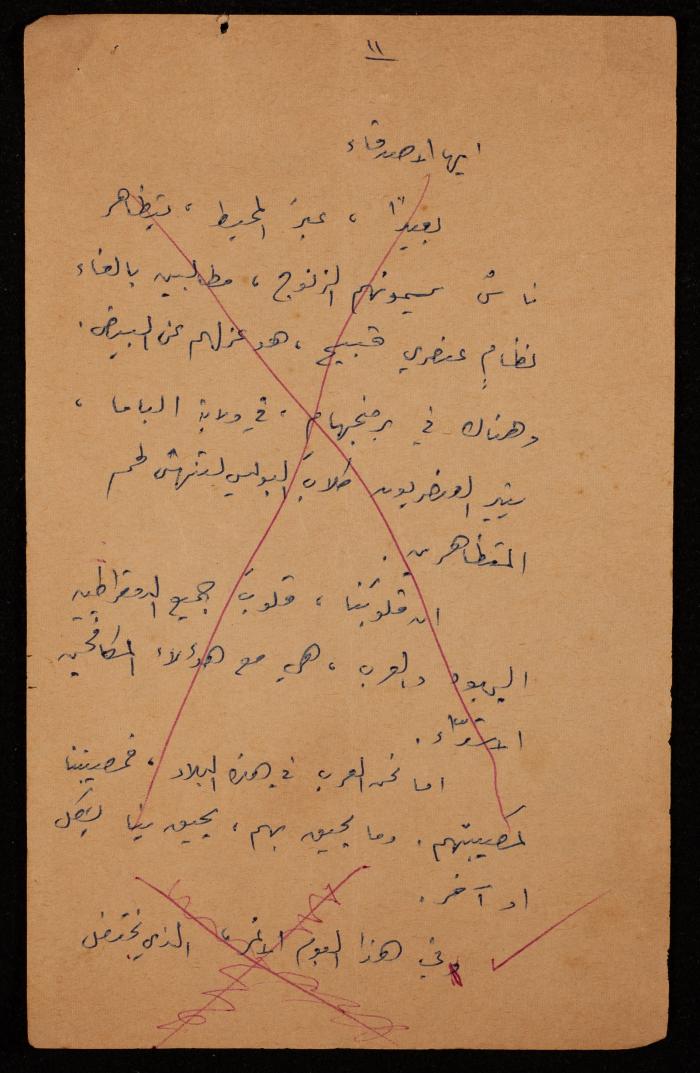 ١١
ايها الاصدقاء
بعيدًا ، عبرَ المحيط ، يتظاهر
ناسٌ يسمونهم الزنوج ، مطالبين بالغاء
نظامٍ عنصري قبيح ، هو عزلهم عن البيض .
وهناك في برمنجهام ، في ولاية الباما ،
يثير العنصريون كلابَ البوليس لتنهش لحم
المتظاهرين .
ان قلوبَنا ، قلوبَ جميع الدمقراطيين
اليهود والعرب ، هي مع هؤلاء المكافحين
الاشدّاء .
اما نحن العرب في هذه البلاد ، فمصيبتنا
كمصيبتهم . وما يحيق بهم ، يحيق بنا بشكل
او آخر .
وفي هذا اليوم الاغر ، الذي نحتفل